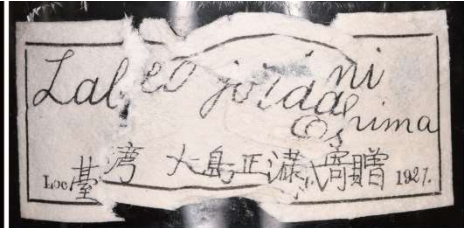 Labeo jordani
Oshima
Loc. 臺湾 大島正満氏寄贈 1927.